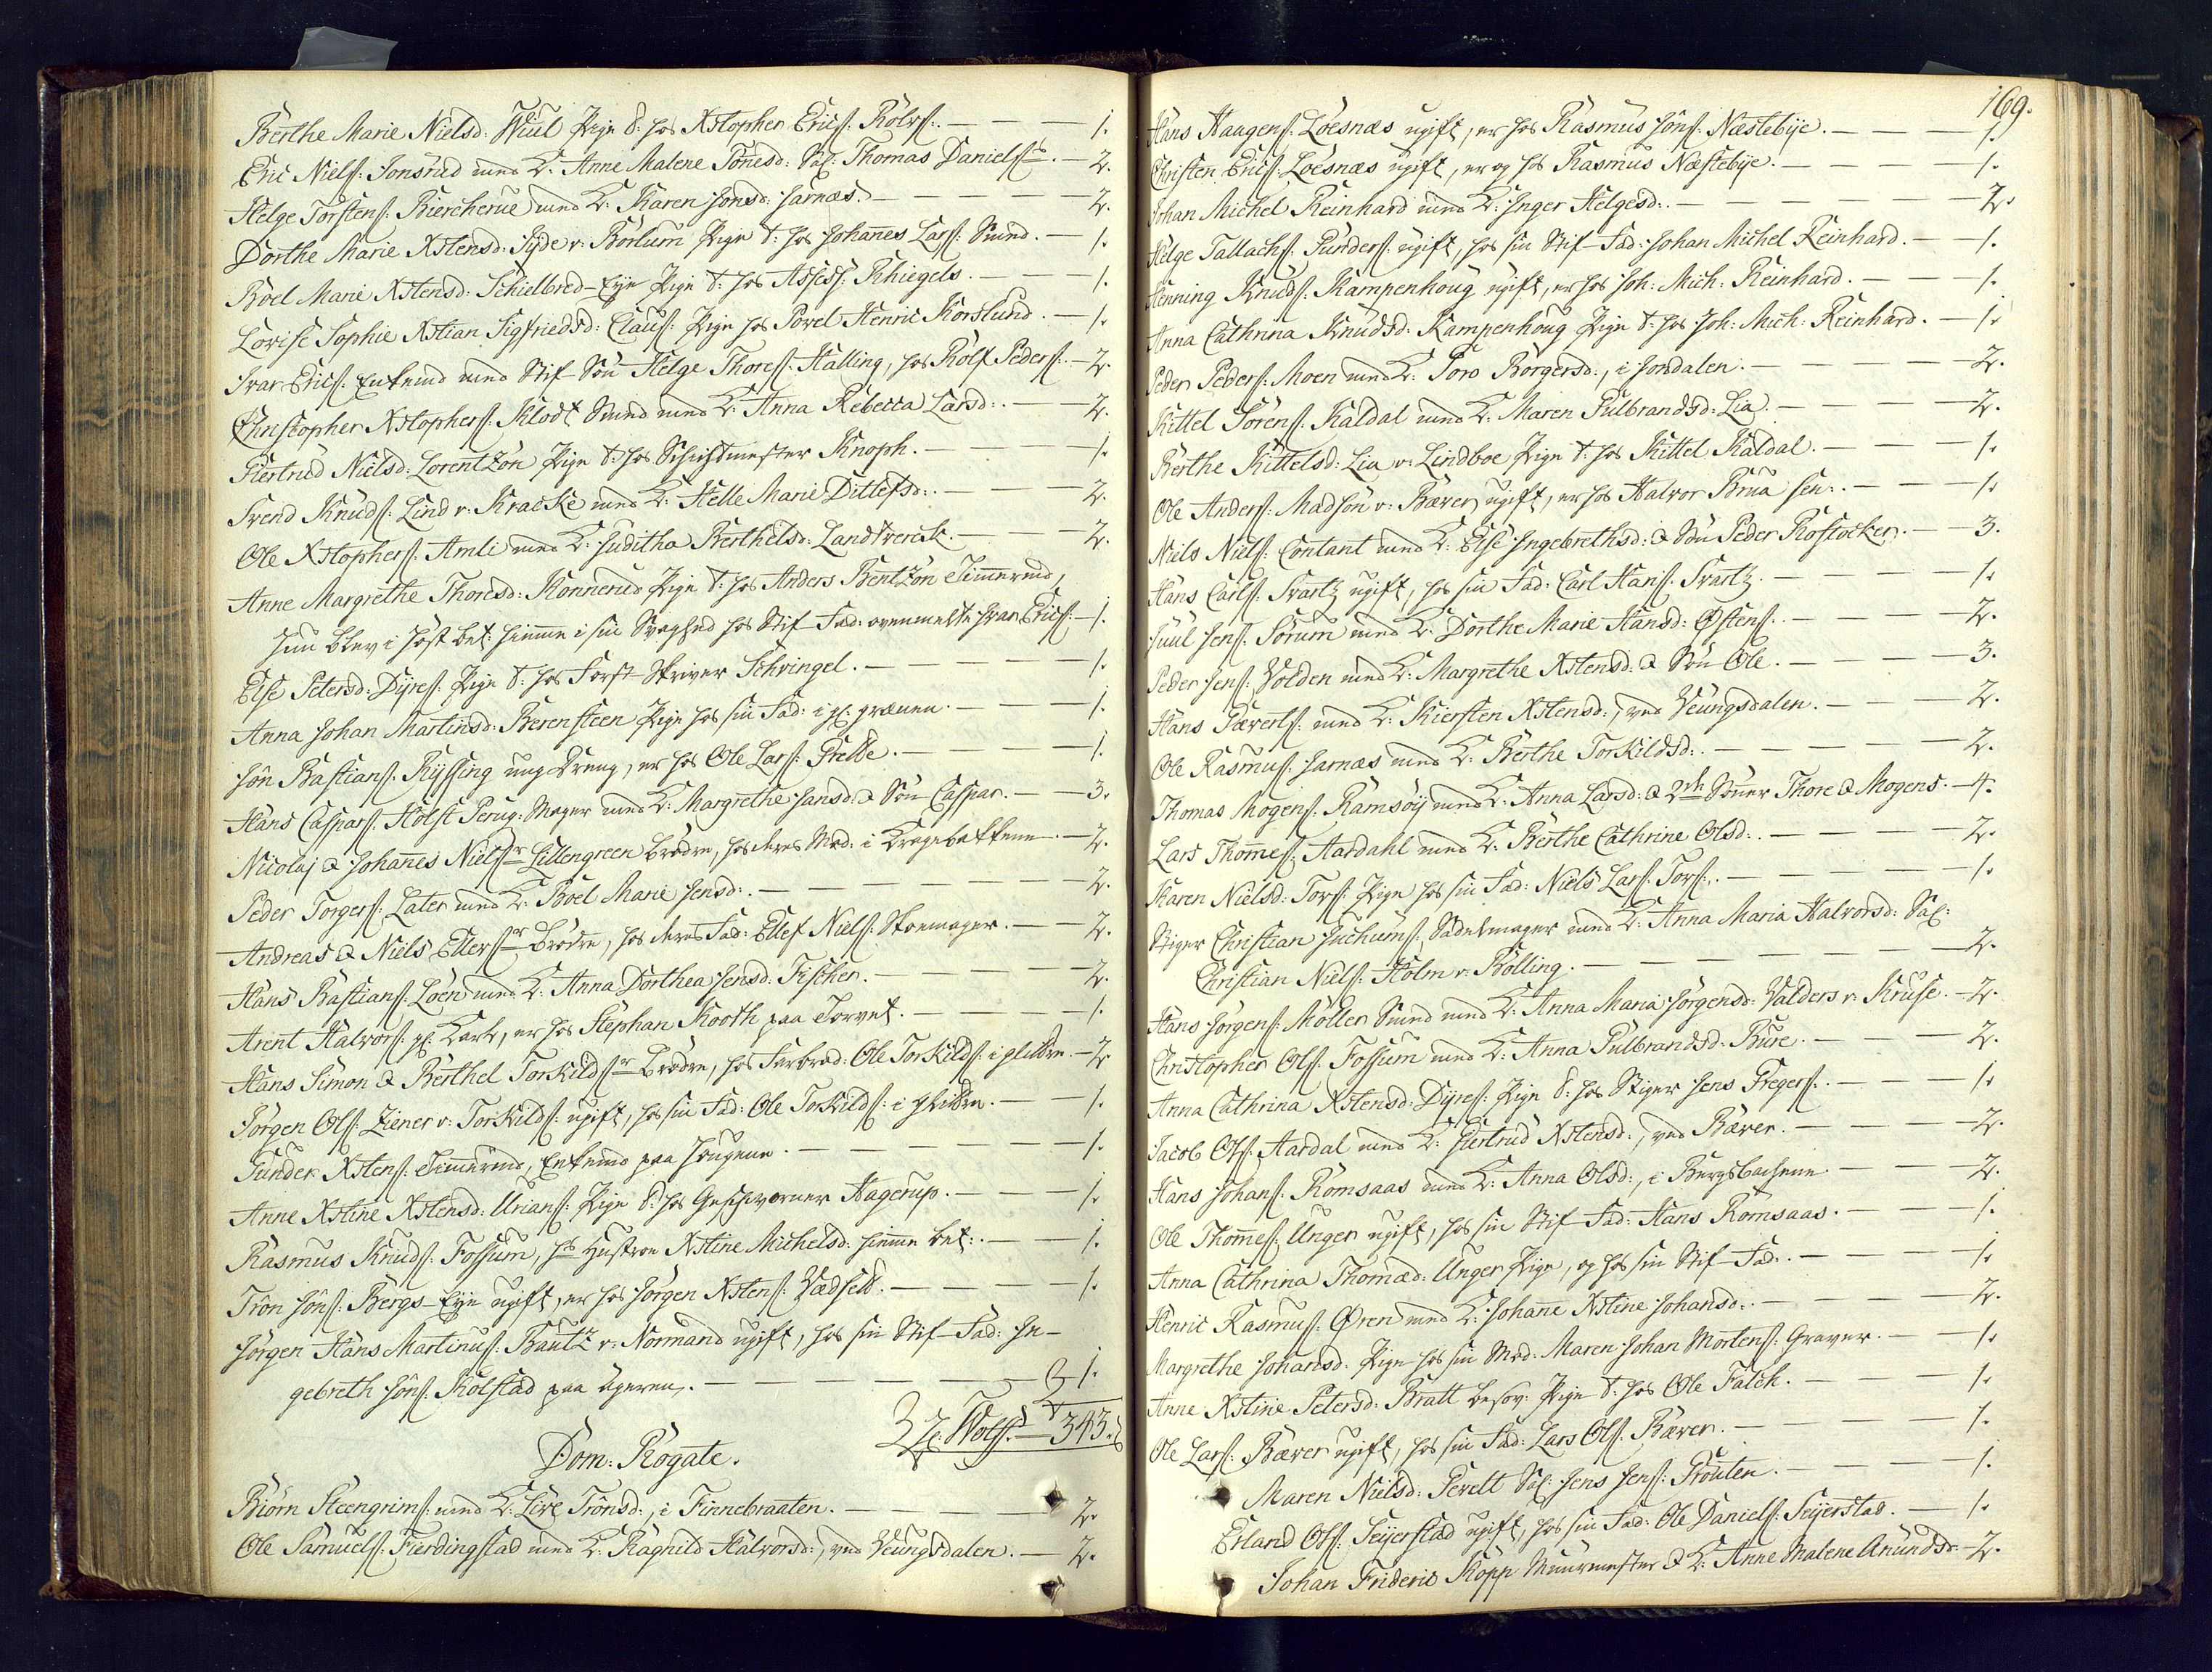 Berthe Marie Nielsd: Wiul Pige t: hos Xstopher Erics: Rolvs:. — — — 1.
Eric Niels: Jonsrud med K: Anne Malene Tonesd: Sal: Thomas Daniels: — 2.
Helge Torstens: Biercherue med K: Karen Jonsd: Jarnæs. — — — 2.
Dorthe Marie Xstensd: Jyde v: Börlum Pige t: hos Johanes Lars: Smed. — 1.
Boel Marie Xstensd: Schielbred-Eye Pige t: hos Assess: Thiegels. — — — 1.
Lovise Sophie Xstian Sigfriedsd: Claus: Pige hos Povel Henric Korslund. — 1.
Ivar Erics: Enkemd med Stif-Sön Helge Thores: Halling, hos Rolf Peders: — 2.
Christopher Xstophers: Klodt Smed med K: Anna Rebecca Larsd:. — — 2.
Giertrud Nielsd: Lorentzön Pige t: hos Schichtmester Knoph. — — — 1.
Svend Knuds: Lind v: Kracke med K: Helle Marie Ditlefsd:. — — 2.
Ole Xstophers: Amli med K: Juditha Berthelsd: Landtverck. — — 2.
Anne Margrethe Thoresd: Konnerud Pige t: hos Anders Bentzön Timermd,
hun blev i Höst bet: hiemme i sin Svaghed hos Stif-Fad: ovenmelte Ivar Erics: — 1.
Else Petersd: Dyres: Pige t: hos Forst-Skriver Schvingel. — — — 1.
Anna Johan Martinsd: Berensteen Pige hos sin Fad: i gl: grænen. — — — 1.
Jön Bastians: Ryssing ung Dreng, er hos Ole Lars: Fredle. — — — 1.
Hans Caspars: Holst Peruq: Mager med K: Margrethe Jansd: & Sön Caspar. — — 3.
Nicolaj & Johanes Niels:r Lillengreen brödre, hos deres Mod: i Kragebakkene. — 2.
Peder Torgers: Later med K: Boel Marie Jensd:. — — — 2.
Andreas & Niels Ellefs:r Brödre, hos deres Fad: Ellef Niels: Skoemager. — — 2.
Hans Bastians: Loen med K: Anna Dorthea Jensd: Fischer. — — — 2.
Arent Halvors: gl: Karl, er hos Stephan Kooth paa Torvet. — — — 1.
Hans Simon & Berthel Torkilds:r Brödre, hos Farbrod: Ole Torkilds: i glitre. — 2.
Jörgen Ols: Ziener v: Torkilds: ugift, hos sin Fad: Ole Torkilds: i glitre. — — 1.
Gunder Xstens: Timermd, Enkemd paa Hougene. — — — 1.
Anne Xstine Xstensd: Urians: Pige t: hos Geschvorner Hagerup. — — — 1.
Rasmus Knuds: Fossum, hs Hustroe Xstine Michelsd: hiemme bet:. — — 1.
Trön Jöns: Bergs-Eye ugift, er hos Jörgen Xstens: Vedseld. — — — 1.
Jörgen Hans Martinus: Bautz v: Normand ugift, hos sin Stif-Fad: In-
gebreth Jöns: Kolstad paa Ageren. — — — 1.
H: Wolfs: — 343.
Dom: Rogate.
Biörn Steengrims: med K: Live Trönsd:, i Finnebraaten. — — — 2.
Ole Samuels: Fierdingstad med K: Ragnild Halvorsd:, ved Veungsdalen. — 2.
169.
Hans Haagens: Loesnæs ugift, er hos Rasmus Jöns: Næstebye. — — 1.
Christen Erics: Loesnæs ugift, er og hos Rasmus Næstebye. — — — 1.
Johan Michel Reinhard med K: Inger Helgesd:. — — — 2.
Helge Tallachs: Gunders: ugift, hos sin Stif-Fad: Johan Michel Reinhard. — 1.
Henning Knuds: Kampenhoug ugift, er hos Joh: Mich: Reinhard. — — 1.
Anna Cathrina Knudsd: Kampenhoug Pige t: hos Joh: Mich: Reinhard. — 1.
Peder Peders: Moen med K: Goro Borgersd:, i Jondalen. — — — 2.
Kittel Sörens: Kaldal med K: Maren Gulbrandsd: Lia. — — — 2.
Berthe Kittelsd: Lia v: Lindboe Pige t: hos Kittel Kaldal. — — — 1.
Ole Anders: Madsön v: Bæver ugift, er hos Halvor Brua sen:. — — 1.
Niels Niels: Contant med K: Else Ingebrethsd: & Sön Peder Rostocker. — — 3.
Hans Carls: Svartz ugift, hos sin Fad: Carl Hans: Svartz. — — — 1.
Juul Jens: Sörum med K: Dorthe Marie Hansd: Østens:. — — — 2.
Peder Jens: Volden med K: Margrethe Xstensd: & Sön Ole. — — — 3.
Hans Peverls: med K: Kiersten Xstensd:, ved Veungsdalen. — — — 2.
Ole Rasmus: Jarnæs med K: Berthe Torkildsd:. — — — 2.
Thomas Mogens: Ramsöy med K: Anna Larsd: & 2de Sönner Thore & Mogens. — 4.
Lars Thomes: Aardahl med K: Berthe Cathrine Olsd:. — — — 2.
Karen Nielsd: Tors: Pige hos sin Fad: Niels Lars: Tors:. — — — 1.
Stiger Christian Jochums: Sadelmager med K: Anna Maria Halvorsd: Sal:
Christian Niels: Holm v: Bölling. — — — 2.
Hans Jörgens: Möller Smed med K: Anna Maria Jörgensd: Valders v: Kruse. — 2.
Christopher Ols: Fossum med K: Anna Gulbrandsd: Bure. — — — 2.
Anna Cathrina Xstensd: Dyres: Pige t: hos Stiger Jens Gregers:. — — 1.
Jacob Ols: Aardal med K: Giertrud Xstensd:, ved Bæver. — — — 2.
Hans Johans: Romsaas med K: Anna Olsd:, i Bergsbachene. — — — 2.
Ole Thomes: Unger ugift, hos sin Stif-Fad: Hans Romsaas. — — — 1.
Anna Cathrina Thomæd: Unger Pige, og hos sin Stif-Fad:. — — — 1.
Henric Rasmus: Øren med K: Johane Xstine Johansd:. — — — 2.
Margrethe Johansd: Pige hos sin Mod: Maren Johan Mortens: Graver. — — 1.
Anne Xstine Petersd: Bratt besov: Pige t: hos Ole Falch. — — — 1.
Ole Lars: Bæver ugift, hos sin Fad: Lars Ols: Bæver. — — — 1.
Maren Nielsd: Gevelt Sal: Jens Jens: Grouten. — — — 1.
Erland Ols: Seyerstad ugift, hos sin Fad: Ole Daniels: Seyerstad. — — 1.
Johan Frideric Kopp Muurmester & K: Anne Malene Anundsd: — 2.